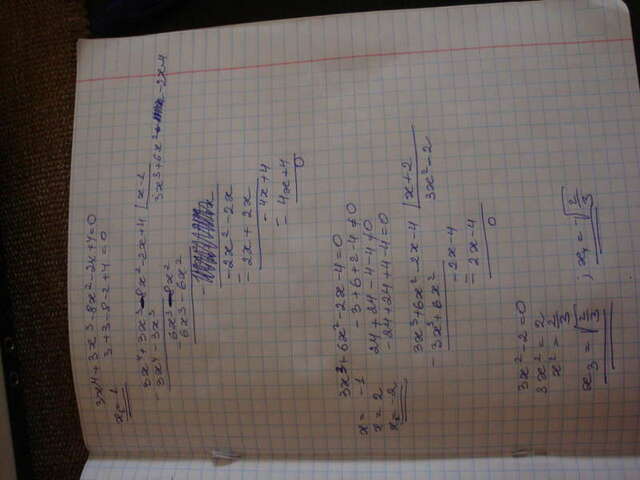 3x⁴+3x³-8x²-2x+4=0
3+3-8-2+4=0
x₁=1
3x⁴+3x³-8x²-2x+4 | x-1
- 3x⁴-3x³
3x³+6x²
-2x-4
6x³-8x²
- 6x³-6x²
-2x²-2x
- -2x+2x
-4x+4
- 4x+4
0
3x³+6x²-2x-4=0
x=-1
-3+6+2-4≠0
x=2
24+24-4-4≠0
x₂=-2
-24+24+4-4=0
3x³+6x²-2x-4 | x+2
- 3x³+6x²
3x²-2
-2x-4
- 2x-4
0
3x²-2=0
3x²=2
x²=2/3
x₃=√2/3 ; x₄=-√2/3